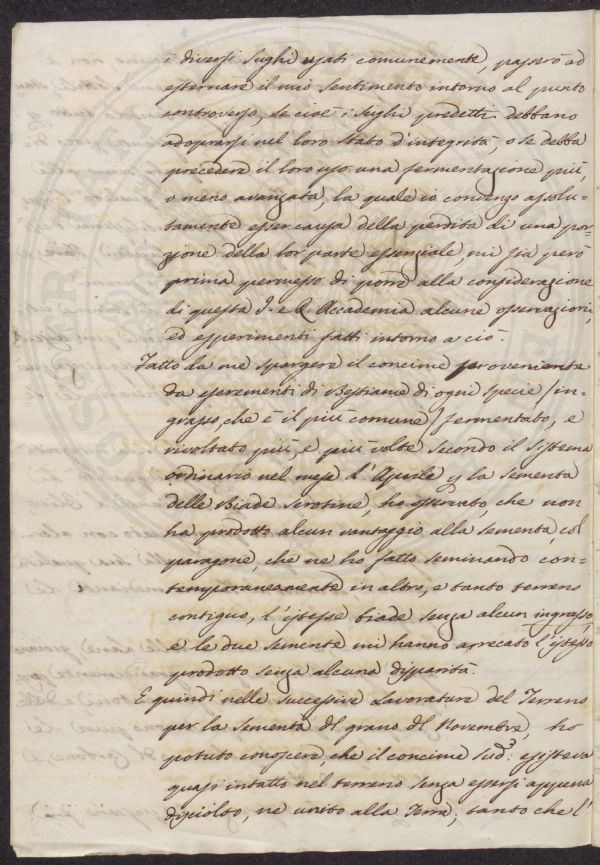 i diversi sughi usati comunemente, passerò ad
esternare il mio sentimento intorno al punto
controverso, se cioè i sughi predetti debbano
adoprarsi nel loro stato d'integrità, o se debba
precedere il loro uso una fermentazione più,
o meno avanzata, la quale io convengo assolu=
tamente esser causa della perdita di una por=
zione della lor parte essenziale, mi sia però
prima permesso di porre alla considerazione
di questa I. e R. Accademia alcune osservazioni,
ed esperimenti fatti intorno a ciò.
Fatto da me spargere il concime proveniente
da escrementi di Bestiame di ogni specie / in=
grasso, che è il più comune / fermentato, e
rivoltato più, e più volte secondo il sistema
ordinario nel mese d'Aprile p la sementa
delle Biade serotine, ho osservato, che non
ha prodotto alcun vantaggio alla sementa, col
paragone, che ne ho fatto seminando con=
temporaneamente in altro, e tanto terreno
contiguo, l'istesse biade senza alcun ingrasso
e le due semente mi hanno arrecato l'istesso
prodotto senza alcuna disparità.
E quindi nelle successive Lavorature del Terreno
per la sementa del grano di Novembre, ho
potuto conoscere, che il concime sud.º esisteva
quasi intatto nel terreno senza essersi appena
disciolto, ne unito alla Terra; tanto che l'